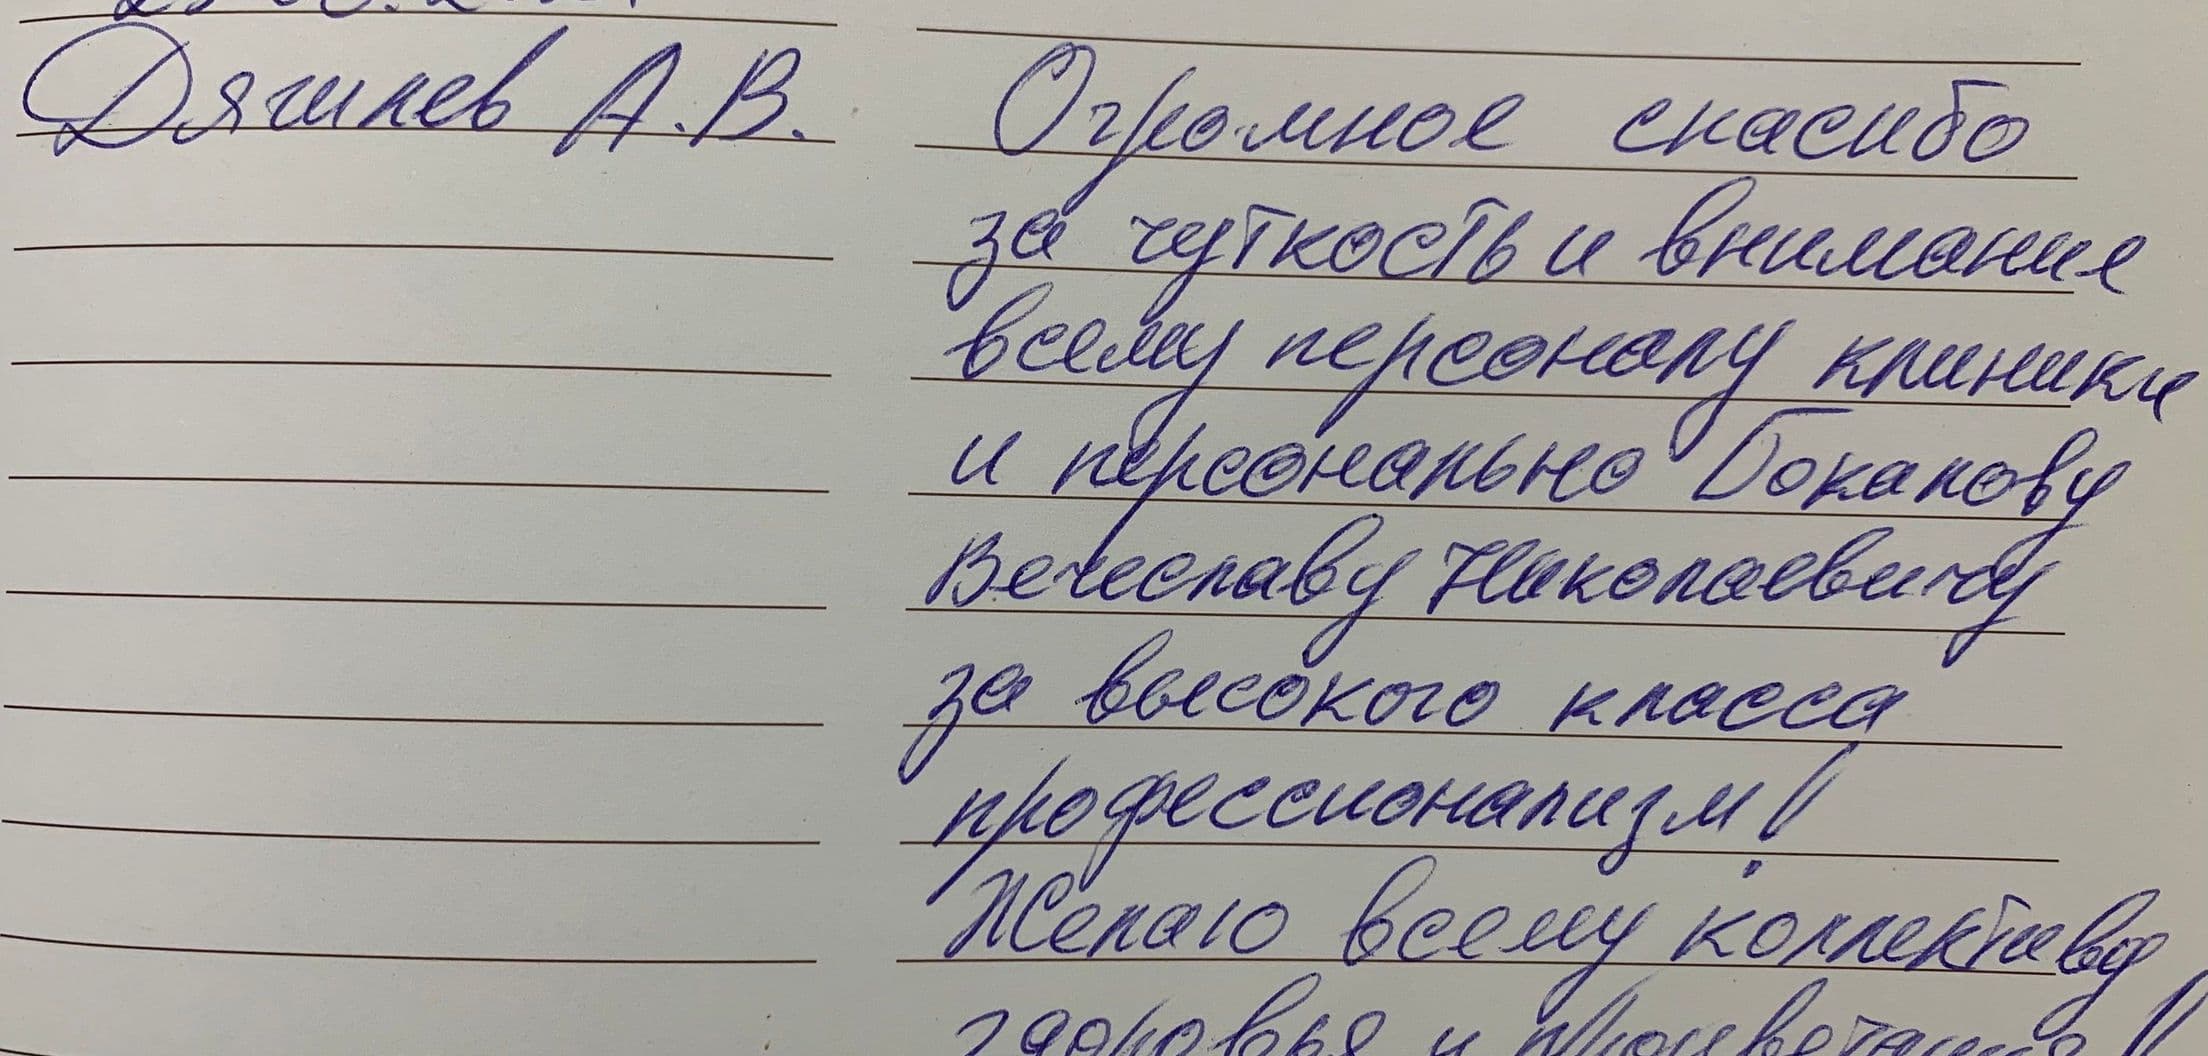 Дягилев А.В.
Огромное спасибо
за чуткость и внимание
всему персоналу клиники
и персонально Бокалову
Вечеславу Николаевичу
за высокого класса
профессионализм!
Желаю всему коллективу
здоровья и процветания!